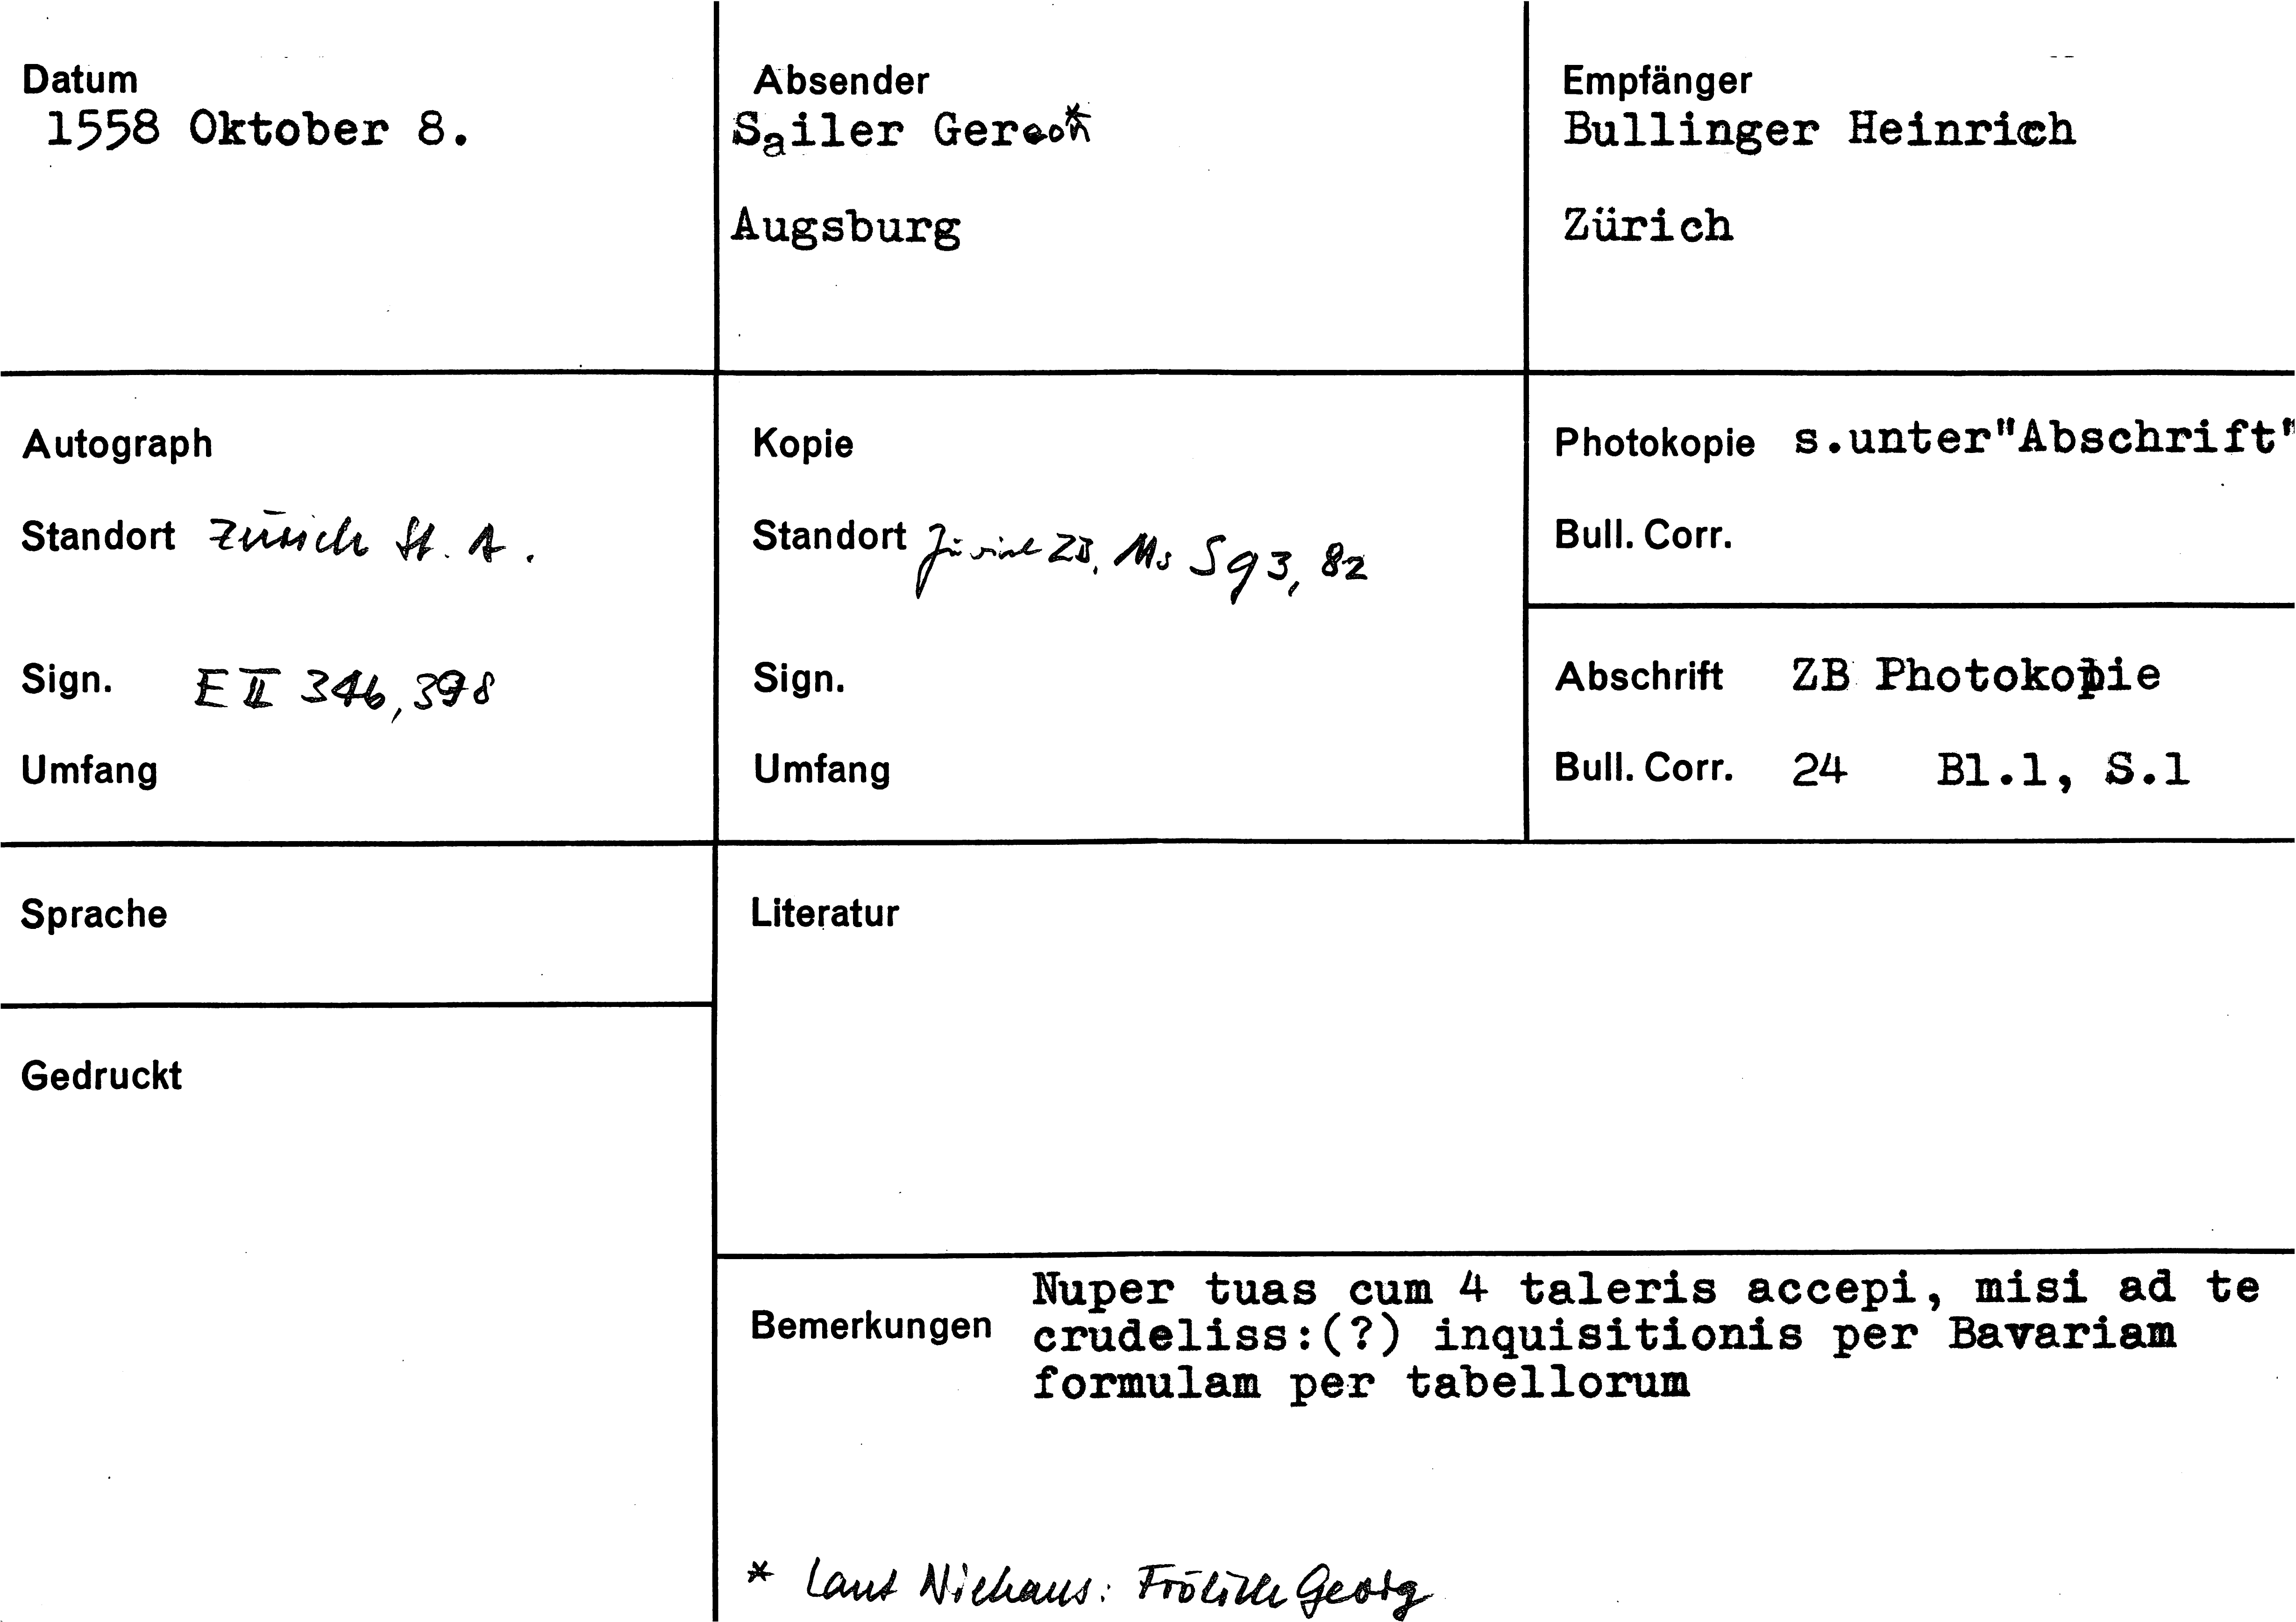 Datum
1558 Oktober 8.
Absender
Sailer Gereon*
Augsburg
Empfänger
Bullinger Heinrich
Zürich
Autograph
Standort Zürich St. A.
Sign. E II 346, 398
Umfang
Kopie
Standort Zürich ZB, Ms S 93, 82
Sign.
Umfang
Photokopie s.unter"Abschrift"
Bull. Corr.
Abschrift ZB Photokopie
Bull. Corr. 24 Bl.1, S.1
Sprache
Literatur
Gedruckt
Bemerkungen
Nuper tuas cum 4 taleris accepi, misi ad te
crudeliss:(?) inquisitionis per Bavariam
formulam per tabellorum
* Laut Niehaus: Frölich Georg